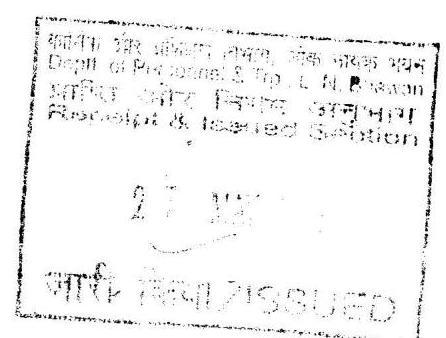 कार्मिक और प्रशिक्षण विभाग, लोक नायक भवन
Deptt. of Personnel & Trg., L. N. Bhawan
प्राप्ति और निर्गम अनुभाग
Receipt & Issued Section
2 MA
जारी किया/ISSUED